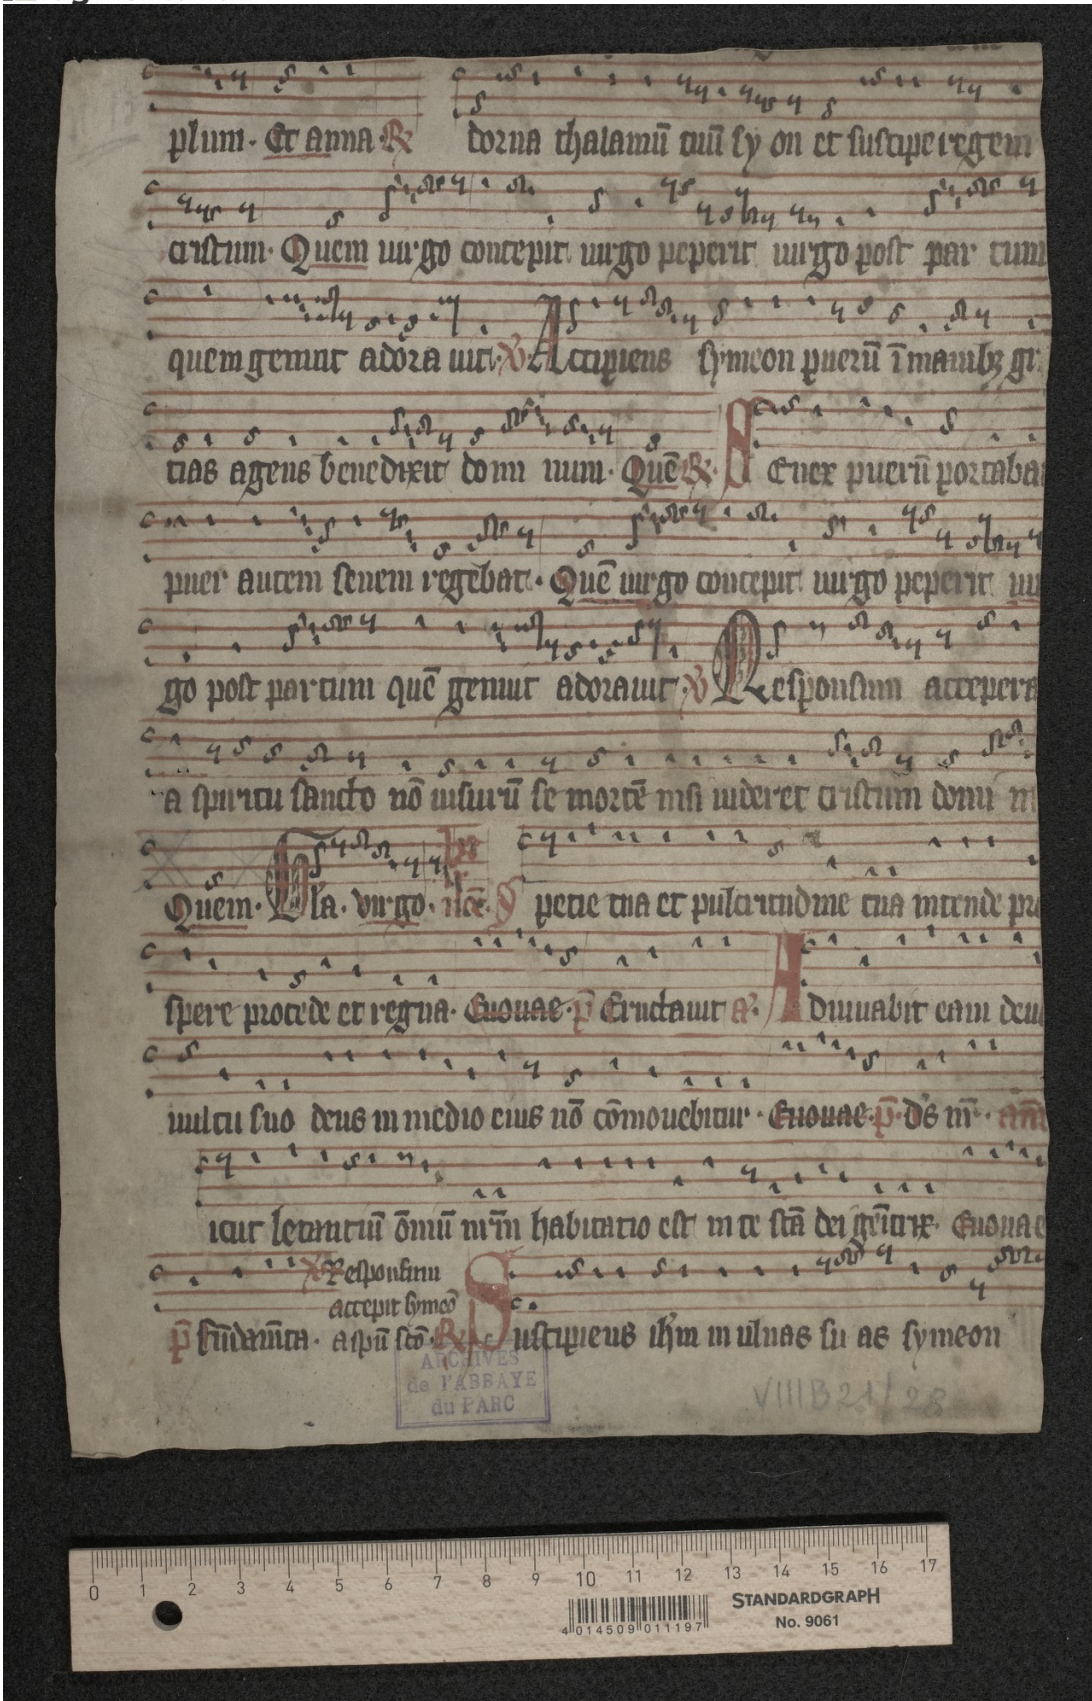 plum. Et anna. R dorna thalamū tuū sy on et suscipe regem
cristum. Quem uirgo concepit uirgo peperit uirgo post par tum
quem genuit adora uit. V Accipiens symeon puerū ī manibꝫ gr
tias agens benedixit domi num. Quē R. S Enex puerū portaba
puer autem senem regebat. Quē uirgo concepit uirgo peperit ui
go post partum quē genuit adorauit. V Responsum accepera
a spiritu sancto nō uisurū se mortē nisi uideret cristum domi n
Quem. Gła. virgo. S pecie tua et pulcritudine tua intende pro
spere procede et regna. Euouae. p̄ Eructauit a. A diuuabit eam deus
uultu suo deus in medio eius nō cōmouebitur. Euouae. p̄. ds nr̄. an̄
icut letantiū ōmiū nr̄m habitatio est in te sc̄a dei geītrix. Euouae
V Responsum
accepit symeō
p̄ Fūdam̄ta. a spū scō. R Suscipiens ih̄m in ulnas su as symeon
ARCHIVES
de l'ABBAYE
du PARC
VIII B 21/28
0 1 2 3 4 5 6 7 8 9 10 11 12 13 14 15 16 17
STANDARDGRAPH
No. 9061
4 014509 011197